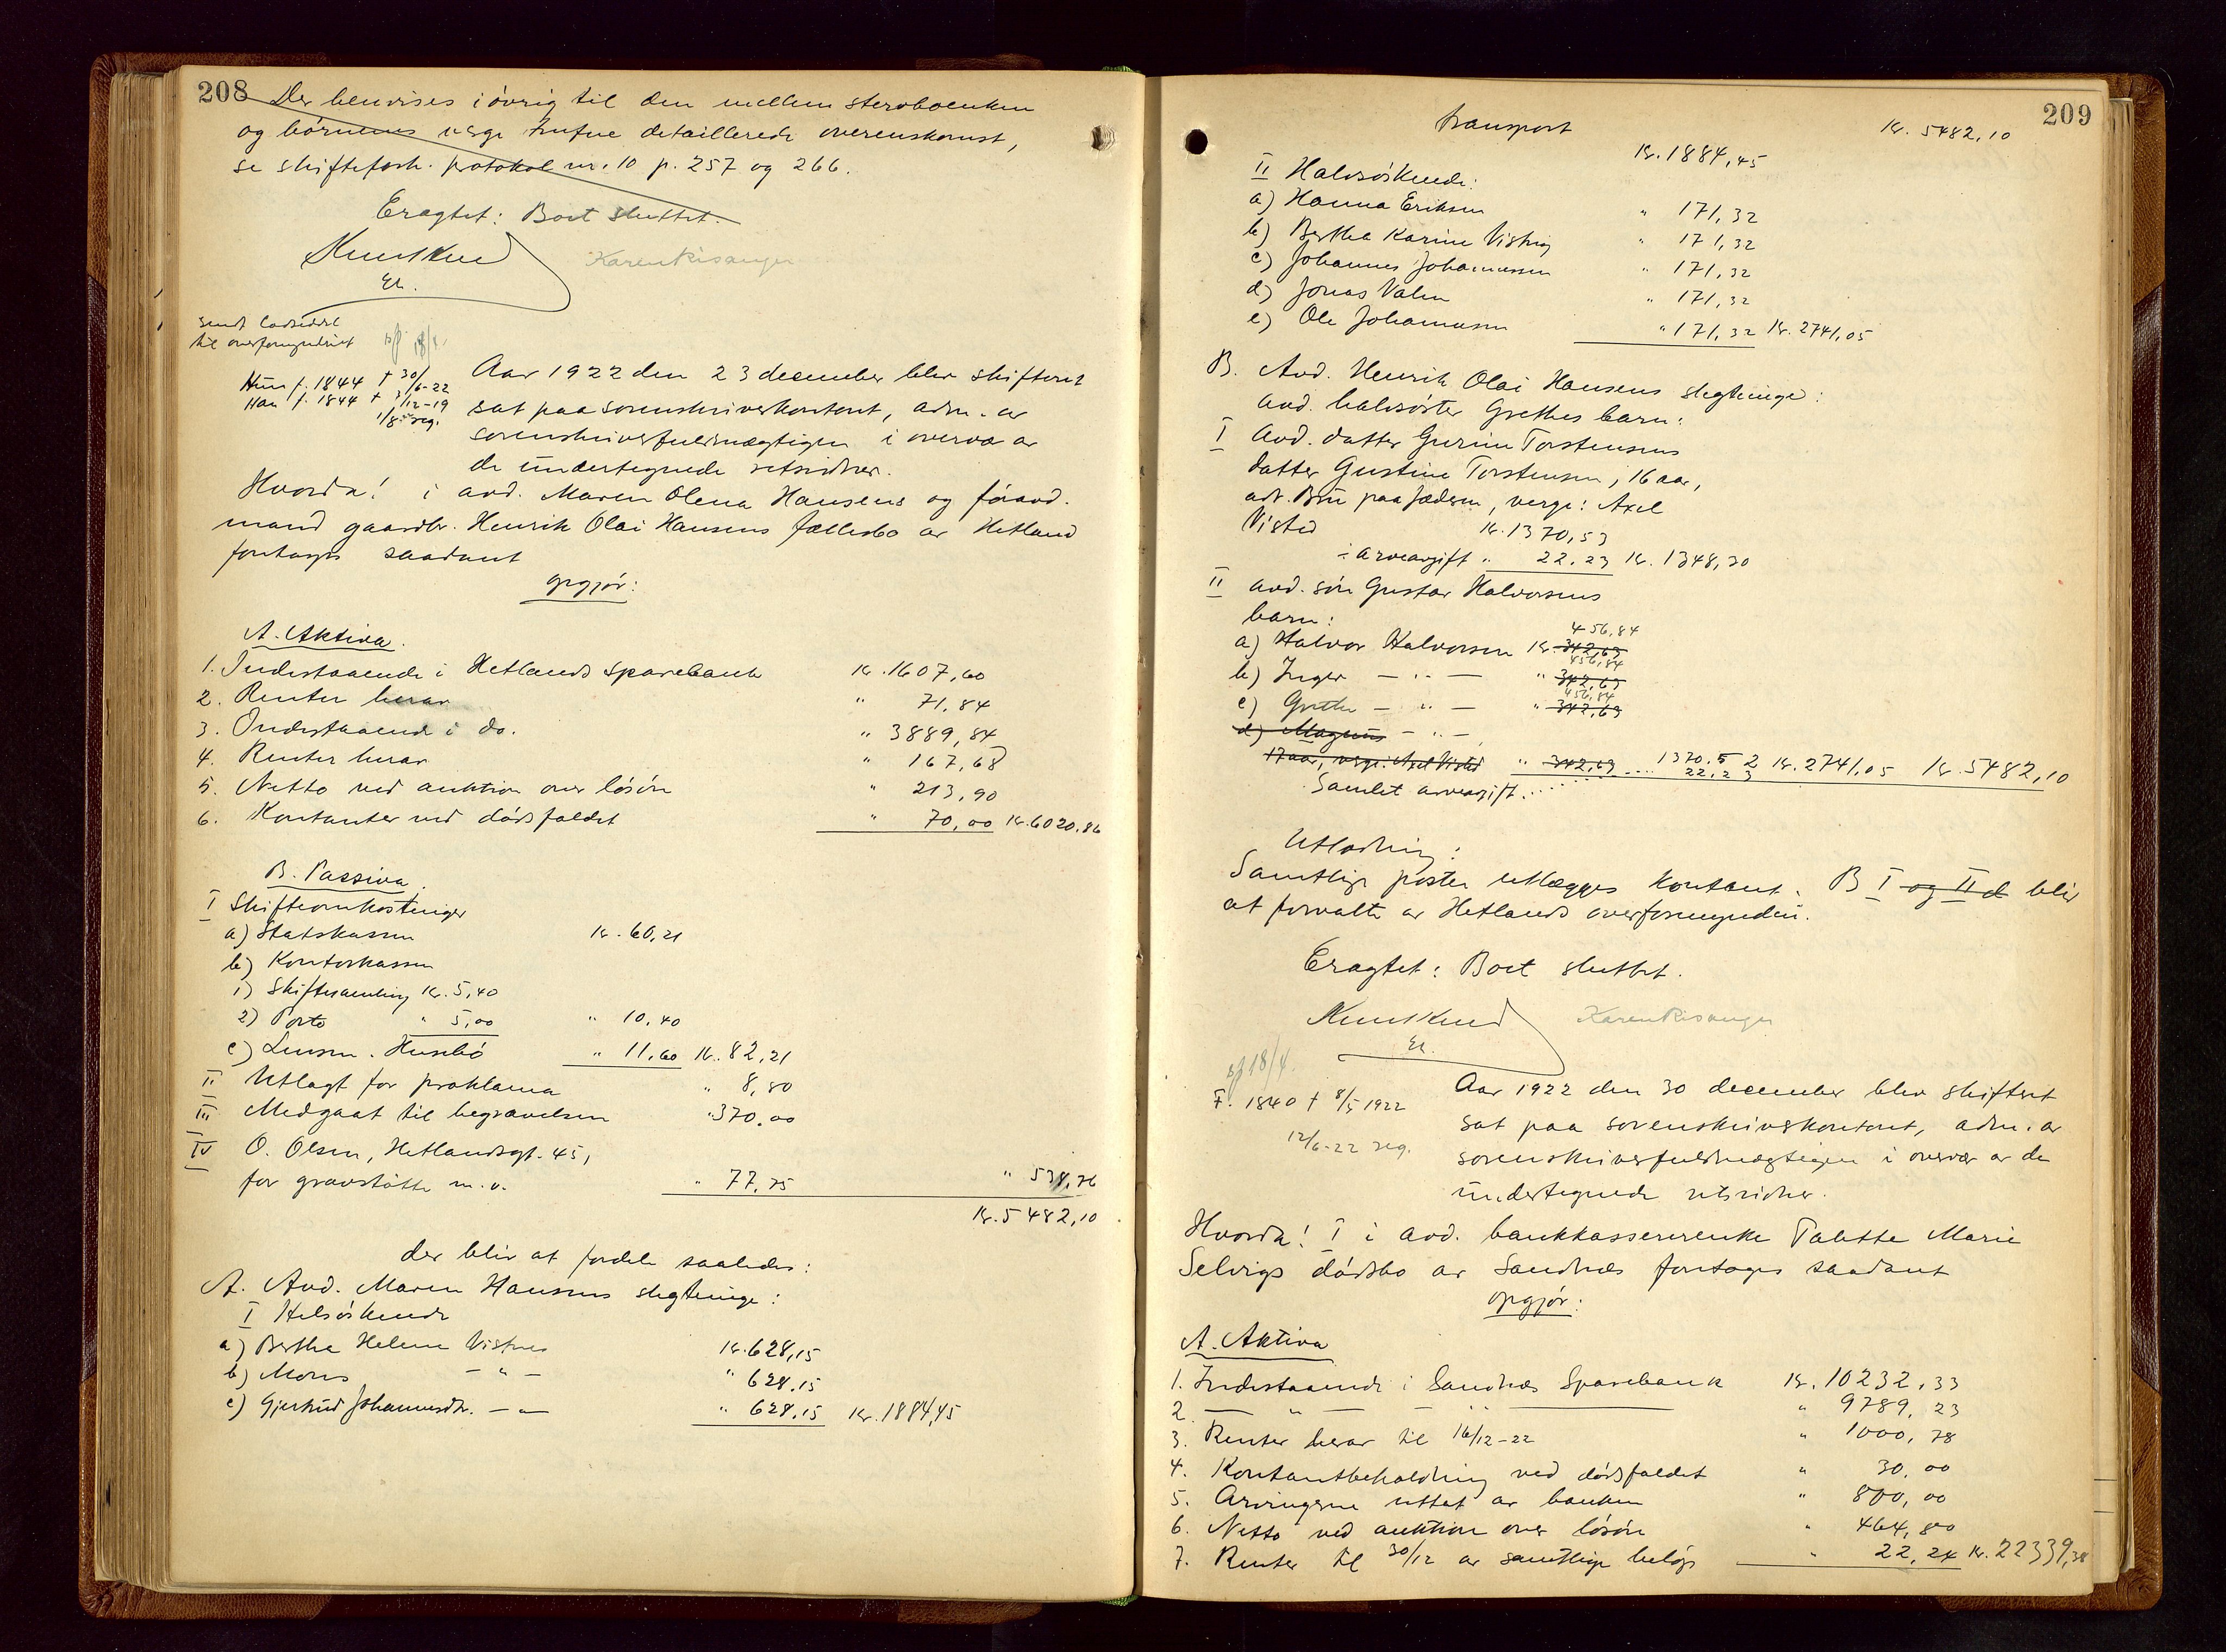 208
Der henvises i øvrig til den mellem stervboenken
og børnenes verge trufne detaillerede overenskomst,
se skifteforh. protokol nr. 10 p. 257 og 266.
Eragtet: Boet sluttet.
Karen Risanger
Er.
Sendt lodseddel
til overformynderiet
Hun f. 1844 † 30/6-22
Han f. 1844 † 3/12-19
1/8 reg.
Aar 1922 den 23 december blev skifteret
sat paa sorenskriverkontoret, adm. av
sorenskriverfuldmægtigen i overvær av
de undertegnede retsvidner.
Hvorda! i avd. Maren Olena Hansens og føravd.
mand gaardbr. Henrik Olai Hansens fællesbo av Hetland
foretages saadant
opgjør:
A. Aktiva.
1. Indestaaende i Hetlands Sparebank kr. 1607,60
2. Renter herav " 71,84
3. Indestaaende i do. " 3889,84
4. Renter herav " 167,68
5. Netto ved auktion over løsøre " 213,90
6. Kontanter ved dødsfaldet " 70,00 kr. 6020,86
B. Passiva.
I Skifteomkostninger
a) Statskassen kr. 60,21
b) Kontorkassen
1) Skiftesamling kr. 5,40
2) Porto " 5,00 " 10,40
c) Lensm. Husebø " 11,60 kr. 82,21
II Utlagt for proklama " 8,80
III Medgaat til begravelsen " 370,00
IV O. Olsen, Hetlandsgt. 45,
for gravstøtte m.v. " 77,75 " 538,76
kr. 5482,10
der blir at fordele saaledes:
A. Avd. Maren Hansens slegtninge:
I Helsøskende
a) Berthe Helene Vistnes kr. 628,15
b) Mons - " - " 628,15
c) Gjertrud Johannesdtr. - " - " 628,15 kr. 1884,45
209
Transport kr. 5482,10
kr. 1884,45
II Halvsøskende:
a) Hanna Eriksen " 171,32
b) Berthe Karine Vistnes " 171,32
c) Johannes Johannessen " 171,32
d) Jonas Valen " 171,32
e) Ole Johannessen " 171,32 kr. 2741,05
B. Avd. Henrik Olai Hansens slegtninge:
avd. halvsøster Grethes barn:
I Avd. datter Gurine Torstensens
datter Gustine Torstensen, 16 aar,
adr. Bru paa Jæderen, verge: Axel
Visted kr. 1370,53
÷ arveavgift " 22,23 kr. 1348,30
II avd. søn Gustav Halvorsens
barn:
456,84
a) Halvor Halvorsen kr. 342,63
456,84
b) Inger - " - " 342,63
456,84
c) Grethe - " - " 342,63
d) Magnus - " -
17 aar, verge: Axel Visted " 342,63 1370,52 kr. 2741,05 kr. 5482,10
Samlet arveavgift..... 22,23
Utlodning:
Samtlige poster utlægges kontant. B I og II d blir
at forvalte av Hetlands overformynderi.
Eragtet: Boet sluttet.
Karen Risanger
Er.
18/4.
F. 1840 † 8/5 1922
12/6-22 reg.
Aar 1922 den 30 december blev skifteret
sat paa sorenskriverkontoret, adm. av
sorenskriverfuldmægtigen i overvær av de
undertegnede retsvidner.
Hvorda! I i avd. bankkassererenke Talette Marie
Selvigs dødsbo av Sandnes foretages saadant
opgjør:
A. Aktiva
1. Indestaaende i Sandnes Sparebank kr. 10232,33
2. - " - - " - " 9789,23
3. Renter herav til 16/12-22 " 1000,78
4. Kontantbeholdning ved dødsfaldet " 30,00
5. Arvingerne uttat av banken " 800,00
6. Netto ved auktion over løsøre " 464,80
7. Renter til 30/12 av samtlige beløp " 22,24 kr. 22339,38